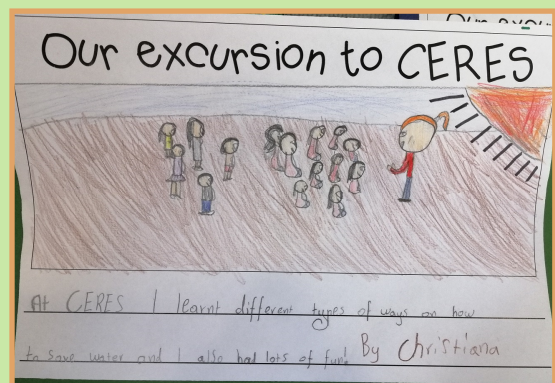 Our excursion to CERES
At CERES I learnt different types of ways on how
to save water and I also had lots of fun! By Christiana